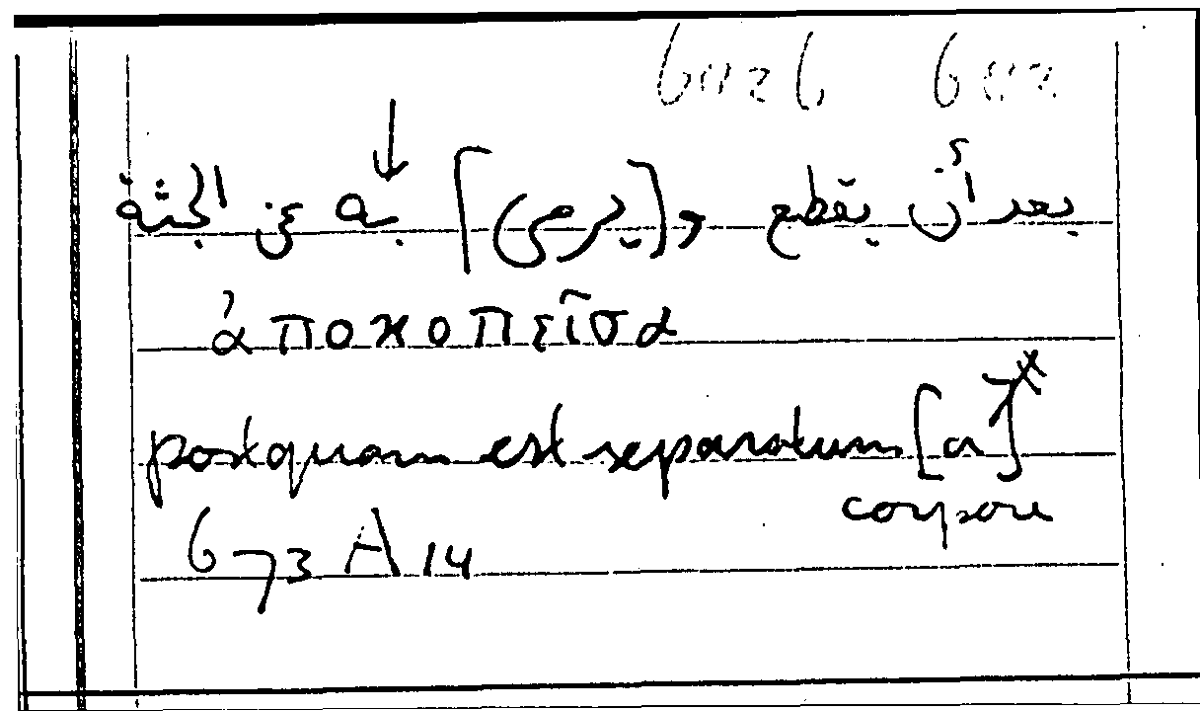 بعد أن يقطع و[يرمى] به عن الجثة
ἀποκοπεῖσα
postquam est separatum [a]*
corpore
673 A 14